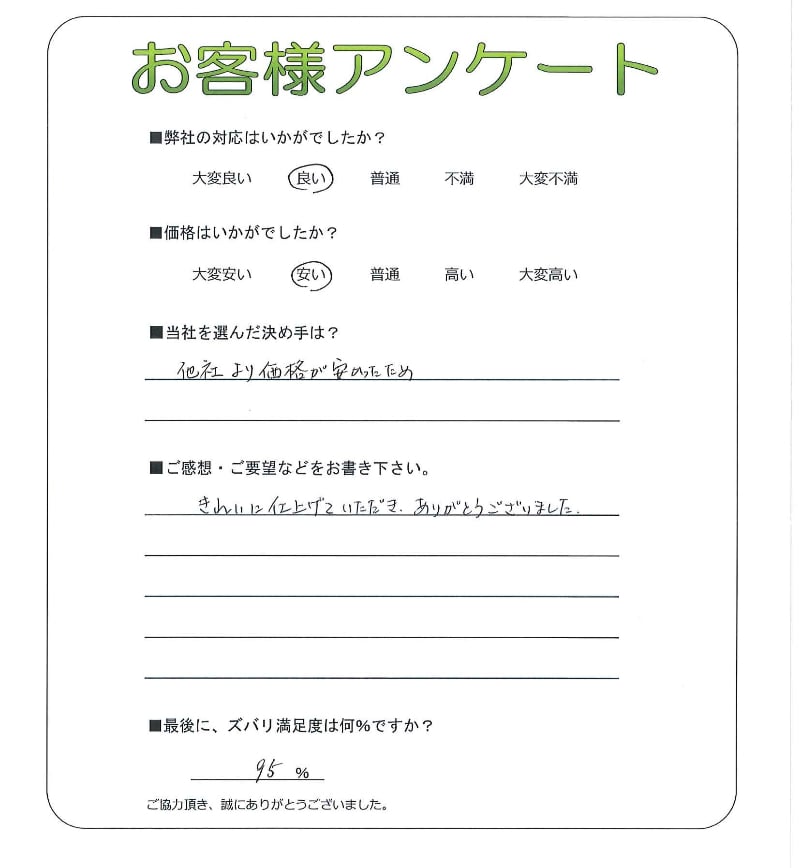 お客様アンケート
■弊社の対応はいかがでしたか？
大変良い 良い 普通 不満 大変不満
■価格はいかがでしたか？
大変安い 安い 普通 高い 大変高い
■当社を選んだ決め手は？
他社より価格が安かったため
■ご感想・ご要望などをお書き下さい。
きれいに仕上げていただき、ありがとうございました。
■最後に、ズバリ満足度は何％ですか？
95 ％
ご協力頂き、誠にありがとうございました。